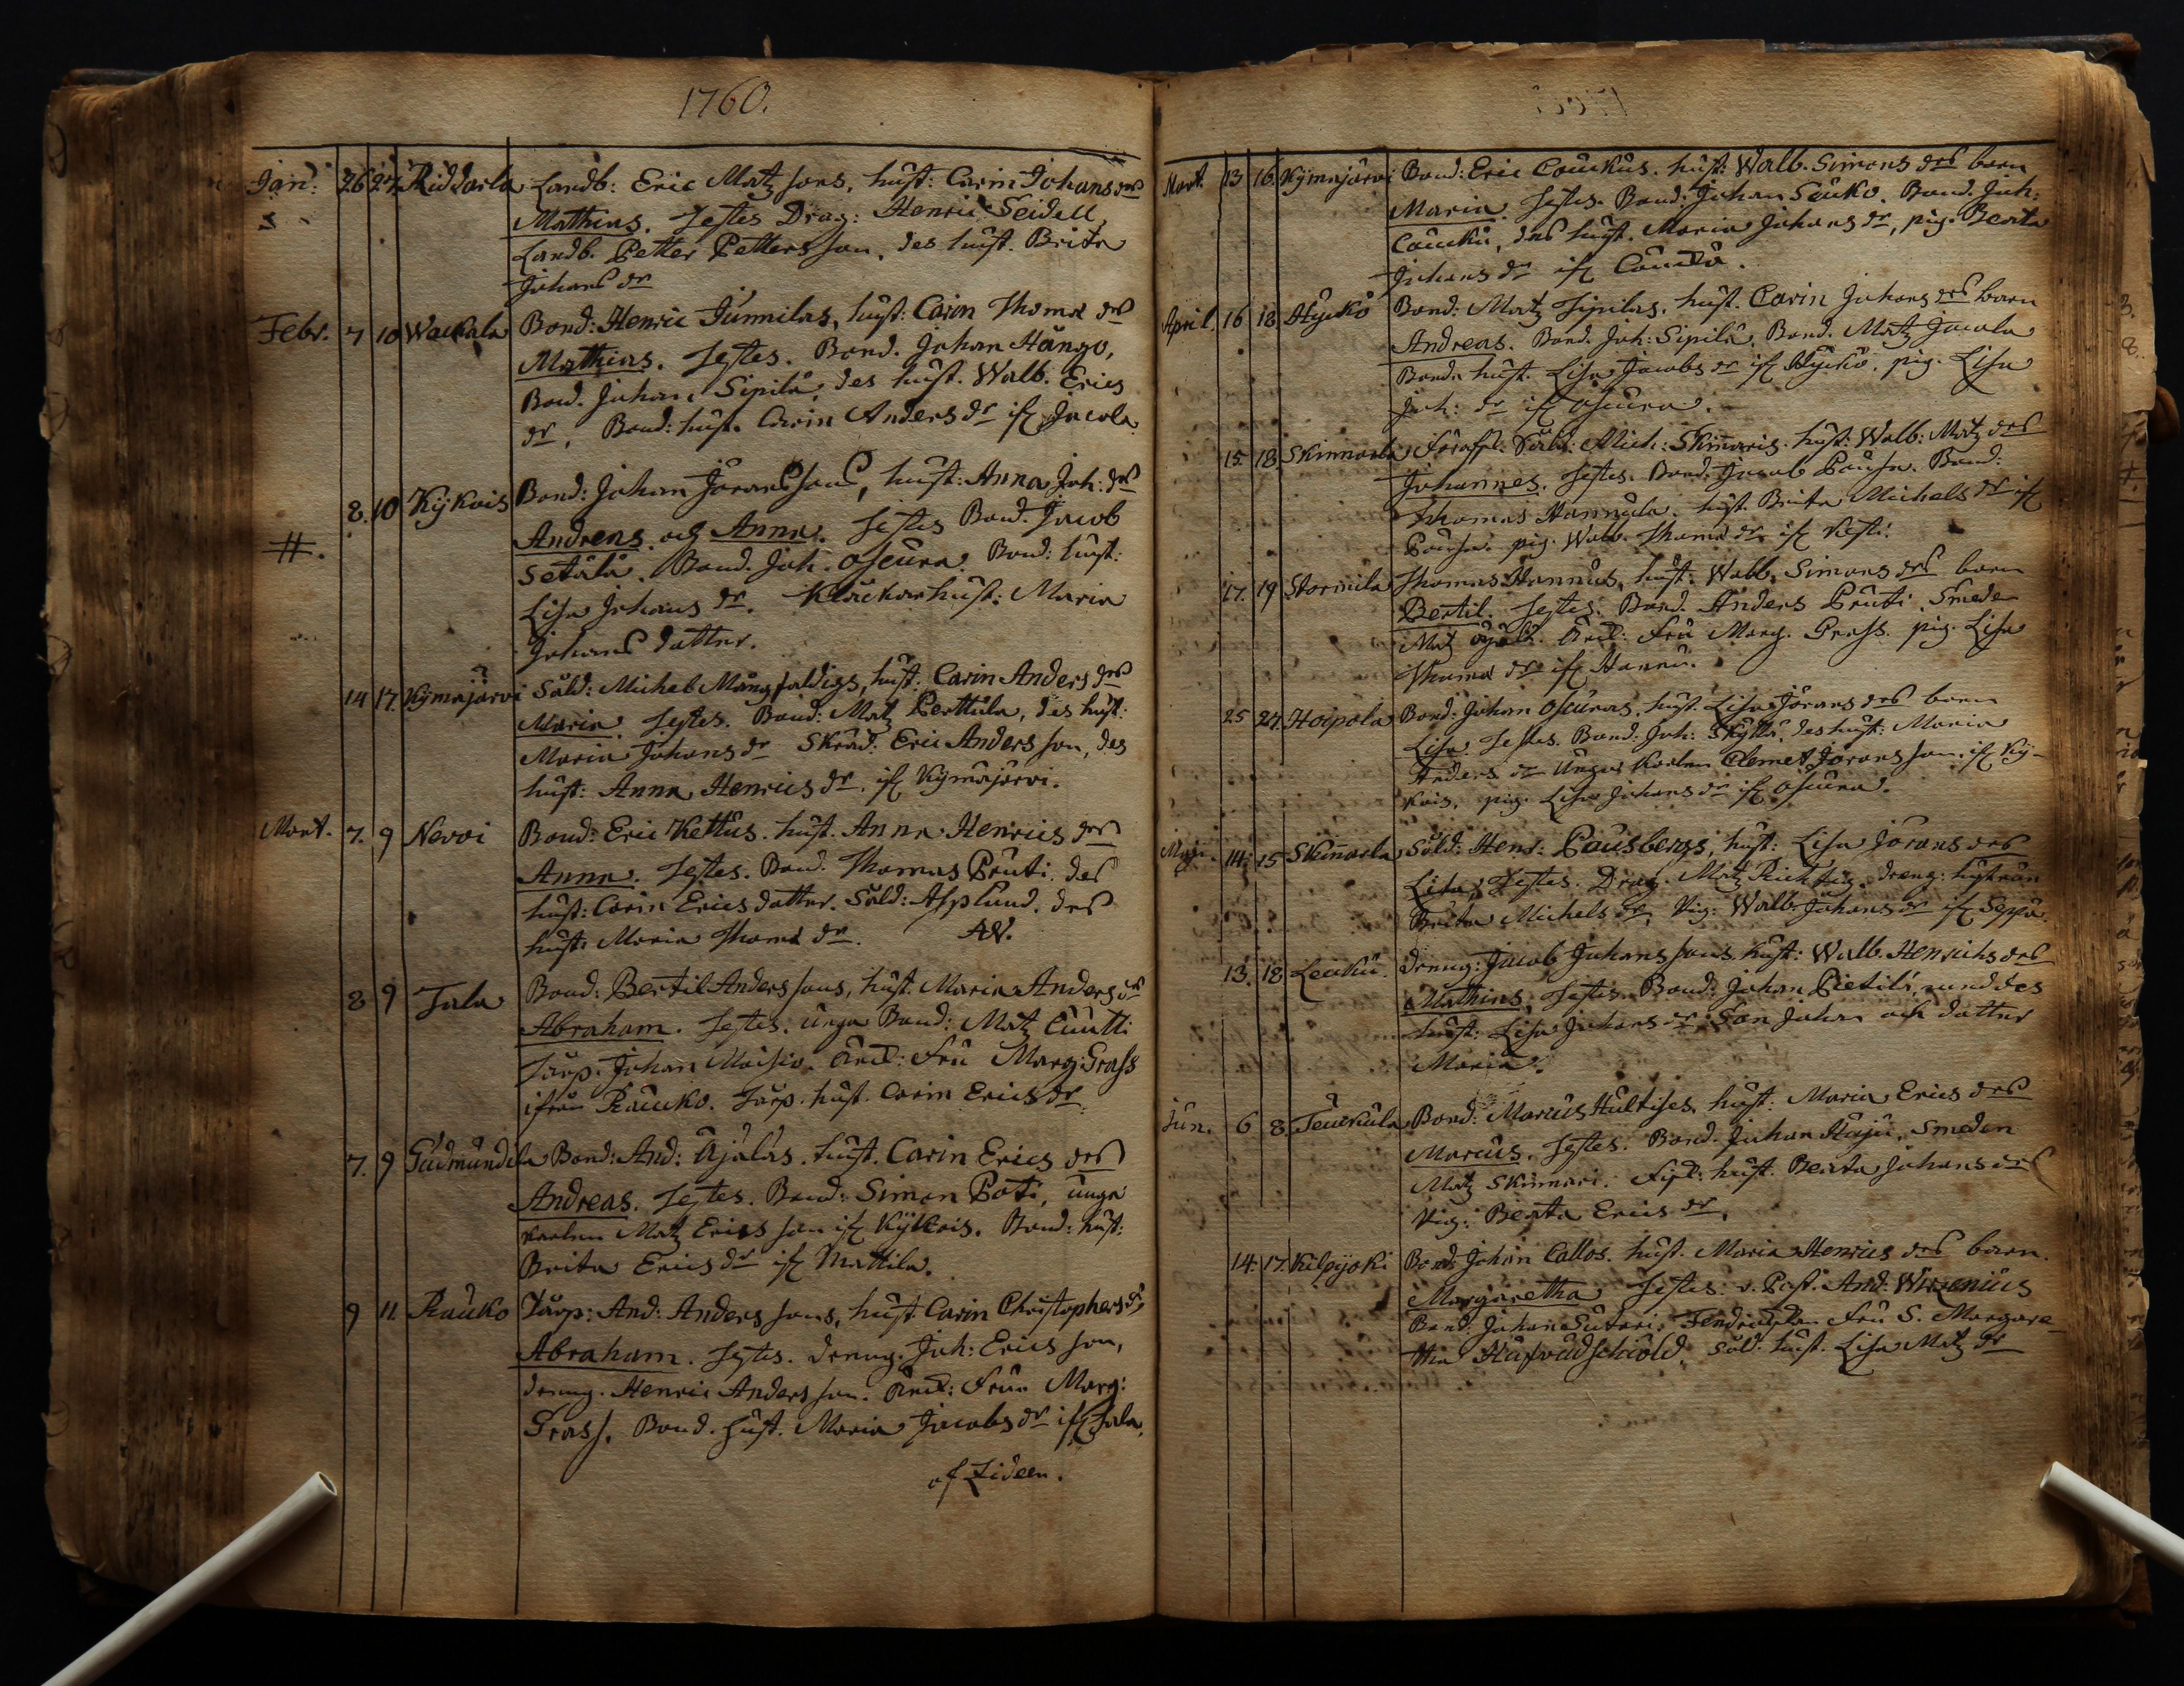 1760.
Jan: 26 27 Riddarla Landb: Eric Matz sons, hust: Carin Johans drs
Mathias. Testes Drag: Henric Seidell
Landb. Petter Pettersson, des hust. Brita
Johans dr
Febr. 7 10 Wackala Bond: Henric Junnilas, hust: Carin Thomæ drs
Mathias. Testes. Bond. Johan Hängo,
Bond. Johan Sipilä, des hust. Walb. Erics
dr, Bond: hust. Carin Anders dr ifr Jacola
8. 10 Kykois Bond: Johan Jörans sons, hust: Anna Joh: drs
Andreas och Anna. Testes Bond. Jacob
#. Setälä. Bond. Joh. Oscura. Bond: hust:
Lisa Johans dr. Klåckar hust: Maria
Johans dotter.
14 17. Kymajärvi Sold: Michel Mångfaldigs, hust: Carin Anders drs
Maria. Testes. Bond: Matz Perttula, des hust:
Maria Johans dr Skräd: Eric Anders son, des
hust: Anna Henrics dr. ifr Kymäjärvi.
Mart. 7. 9 Nevoi Bond: Eric Kettus. hust. Anna Henrics drs
Anna. Testes. Bond. Thomas Prüti. des
hust: Carin Erics dotter. Sold: Asplund. des
hust: Maria Thomæ dr. AW.
8 9 Tala Bond: Bertil Anders sons, hust: Maria Anders drs
Abraham. Testes. unga Bond: Matz Cuutti
Torp. Johan Moisio. And: Fru Marg: Grass
ifrån Rauko. Torp. hust. Carin Erics dr.
7. 9 Gudmundila Bond: And: Äjäläs. hust. Carin Erics drs
Andreas. Testes. Bond: Simon Poti, unga
karlen Matz Erics son ifr Kykois. Bond: hust:
Brita Erics dr ifr Mattila.
9 11. Rauko Torp: And: Anders sons, hust Carin Christophers dr
Abraham. Testes. dreng. Joh: Erics son,
dreng. Henric Anders son. And: Fru Marg:
Grass. Bond. hust. Maria Jacobs dr ifr Tala.
af Lideen.
Mart. 13 16. Kymajärvi Bond: Eric Couckus. hust: Walb. Simons drs barn
Maria. Testes. Bond: Johan Seuko. Bond. Joh:
Coucku, des hust. Maria Johans dr, pig. Beata
Johans dr ifr
April. 16 18 Hyckö Bond: Matz Sipilas, hust. Carin Johans drs barn
Andreas. Bond. Joh: Sipilä, Bond. Matz Jacola
Bonde hust. Lisa Jacobs dr ifr Hyckö, pig. Lisa
Joh: dr ifr Oscura.
15. 18. Skinnarla Mich: Skinnaris. hust: Walb: Matz drs
Johannes. Testes. Bond: Jacob Pausa. Bond:
Thomas Hannula. hust. Brita Michels dr ifr
Pausa. pig. Walb. Thomæ dr ifr Vesti.
17. 19 Stormila Thomas Hannus, hust: Walb. Simons drs barn
Bertil. Testes. Bond. Anders Prüti, Smeden
Matz And: Fru Marg. Grass. pig. Lisa
Thomæ dr ifr Hannu.
25 27. Hoipola Bond: Johan Oscuras, hust. Lisa Jörans drs barn
Lisa. Testes. Bond: Joh: Skyttä, des hust: Maria
Anders dr Unga karlen Clemet Jörans son ifr Ky-
kois, pig. Lisa Johans dr ifr Oscura.
Maji. 14. 15 Skinnarla Sold: Henr: Pausbergs, hust: Lisa Jörans drs
Lisa, Testes. Drag. Matz Ruckteg. dreng: hustrun
Brita Michels dr, Pig: Walb. Johans dr ifr Seppä.
13. 18. Leuku dreng: Jacob Johans sons hust: Walb. Henrichs drs
Mathias, Testes. Bond: Johan Pietilä, des
hust: Lisa Johans dr, Son Johan och dotter
Maria.
Jun. 6 8. Teuckula Bond: Marcus Hultises, hust: Maria Erics drs
Marcus. Testes. Bond. Johan Haju, Smeden
Matz Skinnari. hust. Beata Johans dr
Pig: Beata Erics dr.
14. 17. Kilpijoki Bond: Johan Callos. hust. Maria Henrics drs barn.
Margaretha Testes: v. Past. And: Wirzenius
Bond: Johan Sutari, Fendricken Fru S. Margare-
tha Hufvudschiöld, Sold. hust. Lisa Matz dr